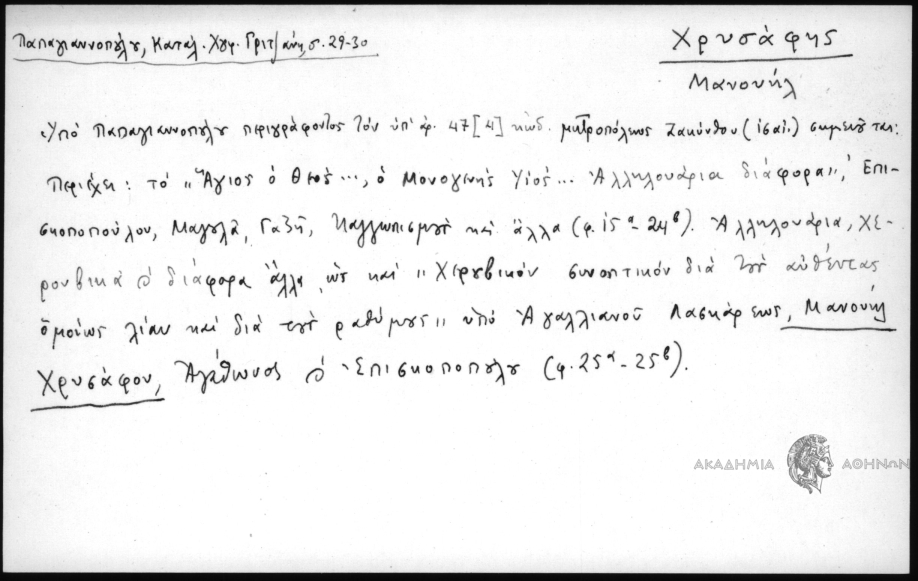 Παπαγιαννοπούλου, Καταλ. Χγφ. Γριτσάνη, σ. 29-30
Χρυσάφης
Μανουήλ
Ὑπὸ Παπαγιαννοπούλου περιγράφοντος τὸν ὑπ' ἀρ. 47 [4] κώδ. μητροπόλεως Ζακύνθου σημειοῦται:
Περιέχει: τὸ „Ἅγιος ὁ Θεὸς..., ὁ Μονογενὴς Υἱὸς... Ἀλληλουάρια διάφορα", Ἐπι-
σκοποπούλου, Μαγουλᾶ, Γαζῆ, Καλλωπισμοῦ καὶ ἄλλα (φ. 15α - 24β). Ἀλληλουάρια, χε-
ρουβικὰ διάφορα ἄλλα ὡς καὶ „Χερουβικὸν συνοπτικὸν διὰ τοὺς αὐθέντας
ὁμοίως λίαν καὶ διὰ τοὺς ραθύμους" ὑπὸ Ἀγαλλιανοῦ Λασκάρεως, Μανουὴλ
Χρυσάφου, Ἀγάθωνος Ἐπισκοποπούλου (φ. 25α - 25β).
ΑΚΑΔΗΜΙΑ ΑΘΗΝΩΝ